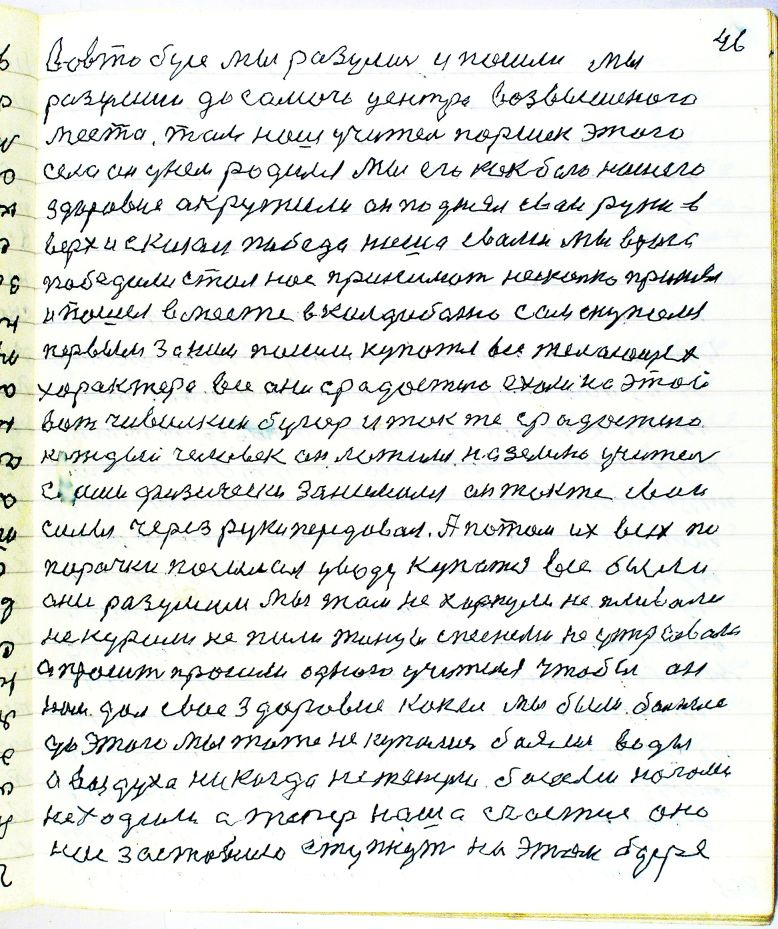 46
Вовто буле мы разулис и пошли мы
разушии до самочь центра возвышеного
места. там наш учител поршек этого
села он унем родился мы его как было нашего
здоровие акружили он поднял сваи руки в
верх и скизал победа наша свами мы врага
победили стал нас принимат несколко
и пошел вместе в калдобаню сам скупался
первым за ним пошли купатя все желающих
характера все ани срадостию ехали на этой
вот чивилкин бугор и так же срадостию
каждый человек он ложился на землю учител
с физически занимался он так же сваи
силы через руки передовал. А потом их всех по
парачки посылал уводу купатя все были
они разушии мы там не харкули не пливали
не курили не пили танцы спеснями не устраивали
а просит просили одного учителя чтобы он
нам дал свае здоровие какеи мы были
до этого мы тоже не купалис баялис воды
а воздуха никогда нетянули босыми ногоми
неходили а тепер наша счастие оно
нас заставило ступнут на этом бугре